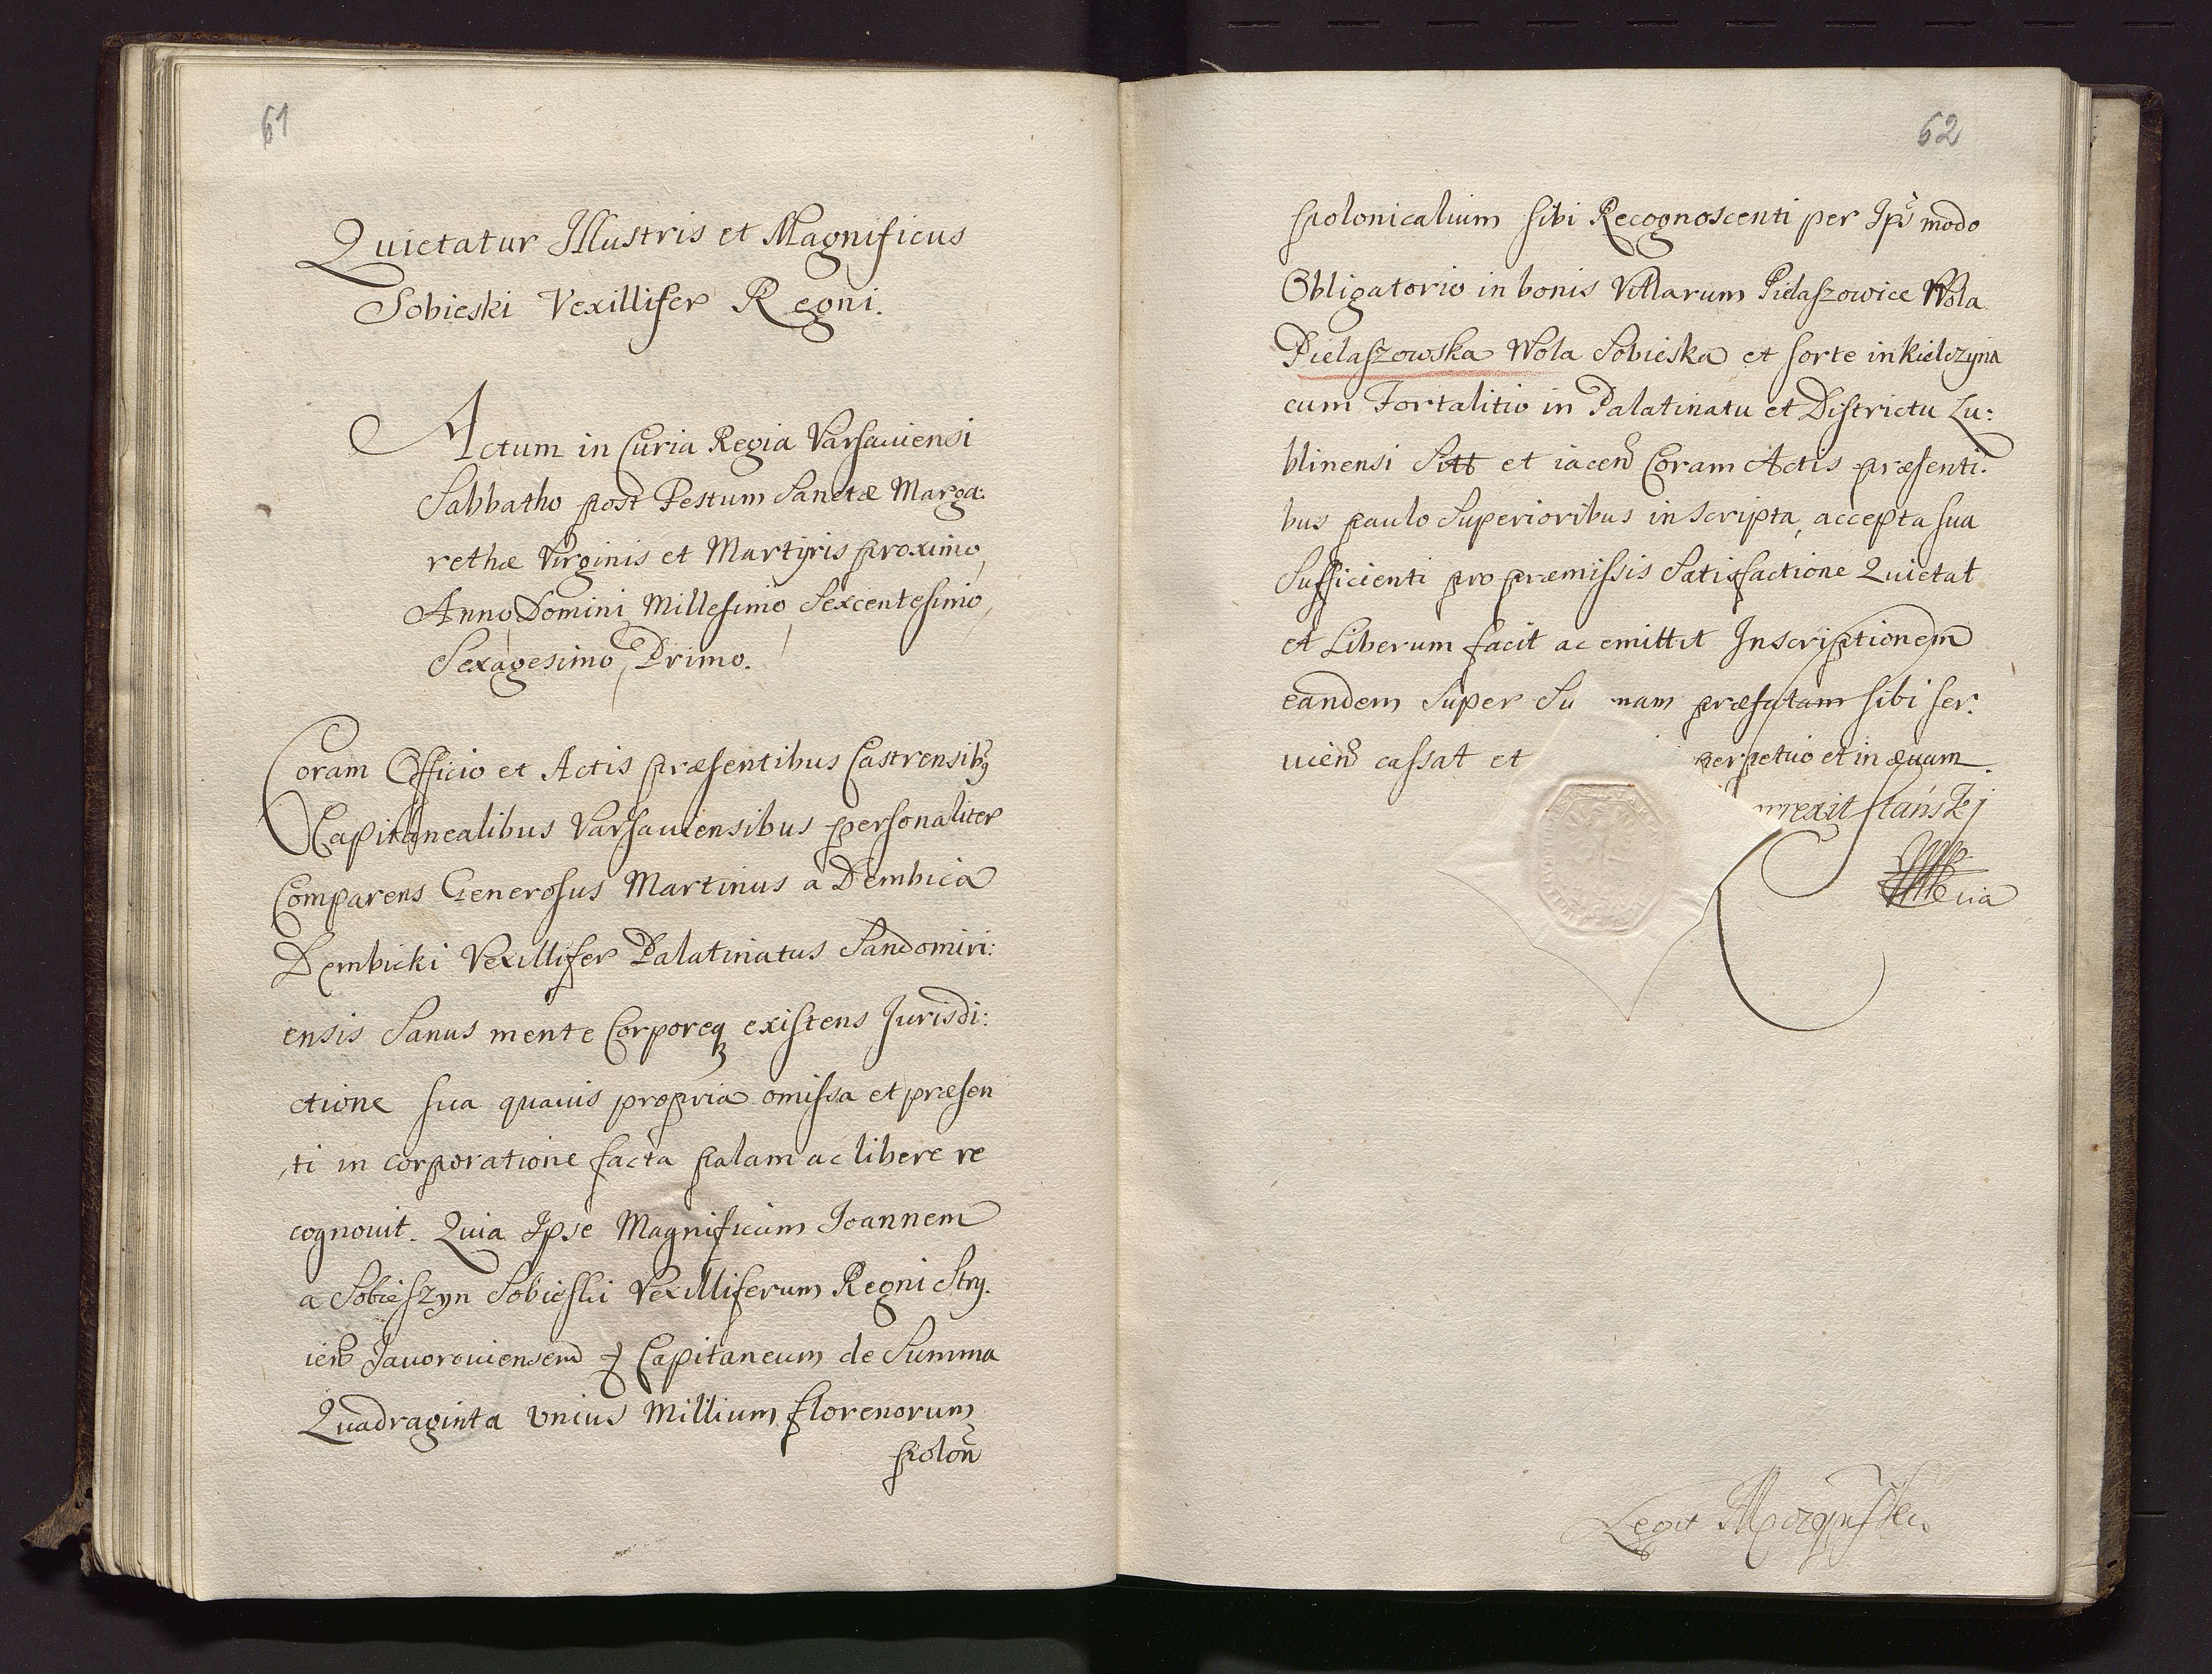 61
Quietatur Illustris et Magnificus
Sobieski Vexillifer Regni.
Actum in Curia Regia Varsaviensi
Sabbatho post Festum Sanctæ Marga:
rethæ Virginis et Martyris proximo,
Anno Domini Millesimo, Sexcentesimo,
Sexagesimo, Primo.
Coram Officio et Actis præsentibus Castrensibꝫ
Capitanealibus Varsauiensibus personaliter
Comparens Generosus Martinus a Dembica
Dembicki Vexillifer Palatinatus Sandomiri:
ensis Sanus mente Corporeqꝫ existens Jurisdi:
ctione sua quauis propria omissa et præsen
ti in corporatione facta palam ac libere re
cognouit. Quia Ipse Magnificum Joannem
a Sobieszyn Sobieski Vexilliferum Regni Stry.
ien Jauorouiensem Capitaneum de Summa
Quadraginta vnius Millium florenorum
polon
62
polonicalium sibi Recognoscenti per Ips modo
Obligatorio in bonis Villarum Pielaszowice Wola
Pielaszowska Wola Sobieska et sorte in Kielczyna
cum Fortalitio in Palatinatu et Districtu Lu:
blinensi Sitt et iacen Coram Actis præsenti:
bus paulo Superioribus inscripta, accepta sua
Sufficienti pro præmissis Satisfactione Quietat
et Liberum facit ac emittit Inscriptionem
eandem Super Su nam præfatam sibi ser:
uien cassat et perpetuo et in æuum
rrexit
Legit